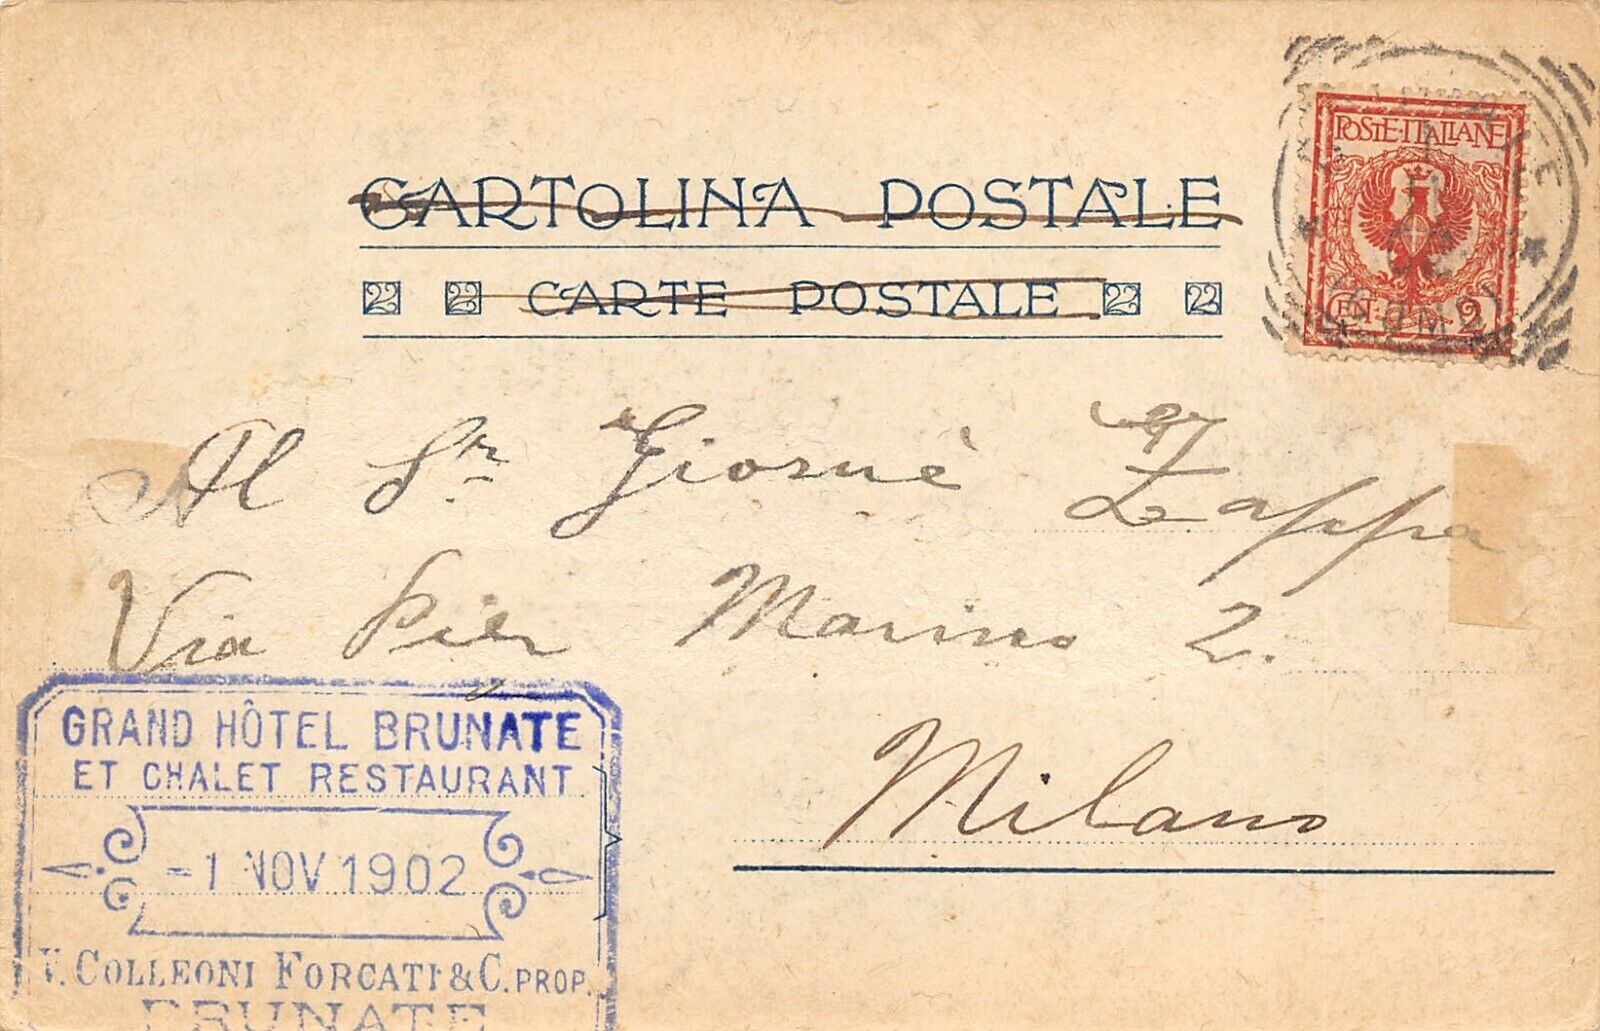 CARTOLINA POSTALE
22 22 CARTE POSTALE 22 22
POSTE·ITALIANE
CEN. 2
(COMO)
Al Sr Giosuè Zappa
Via Pier Marino 2.
Milano
GRAND HÔTEL BRUNATE
ET CHALET RESTAURANT
-1 NOV 1902
V. COLLEONI FORCATI & C. PROP.
BRUNATE